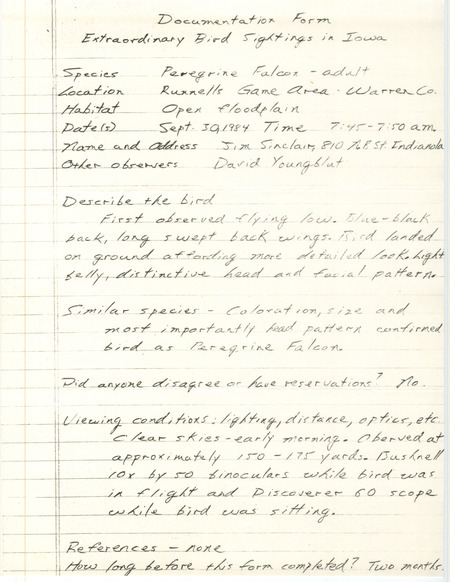 Documentation Form
Extraordinary Bird Sightings in Iowa
Species Peregrine Falcon - adult
Location Runnells Game Area - Warren Co.
Habitat Open floodplain
Date(s) Sept. 30, 1984 Time 7:45-7:50 am.
Name and address Jim Sinclair, 810 St. Indianola
Other observers David Youngblut
Describe the bird
First observed flying low. Blue-black
back, long swept back wings. Bird landed
on ground affording more detailed look. Light
belly, distinctive head and facial pattern.
Similar species - Coloration, size and
most importantly head pattern confirmed
bird as Peregrine Falcon.
Did anyone disagree or have reservations? No.
Viewing conditions: lighting, distance, optics, etc.
Clear skies - early morning. Oberved at
approximately 150-175 yards. Bushnell
10x by 50 binoculars while bird was
in flight and Discoverer 60 scope
while bird was sitting.
References - none
How long before this form completed? Two months.